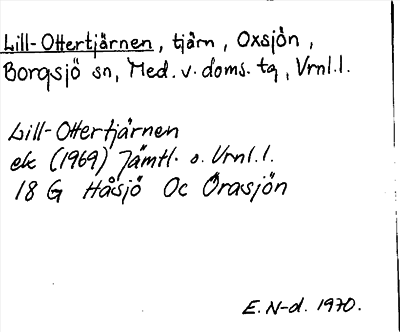 Lill-Ottertjärnen, tjärn, Oxsjön,
Borgsjö sn, Med. v. doms. tg, Vrnl.l.
Lill-Ottertjärnen
ek (1969) Jämtl. o. Vrnl.l.
18 G Håsjö Oc Örasjön
E. N-d. 1970.